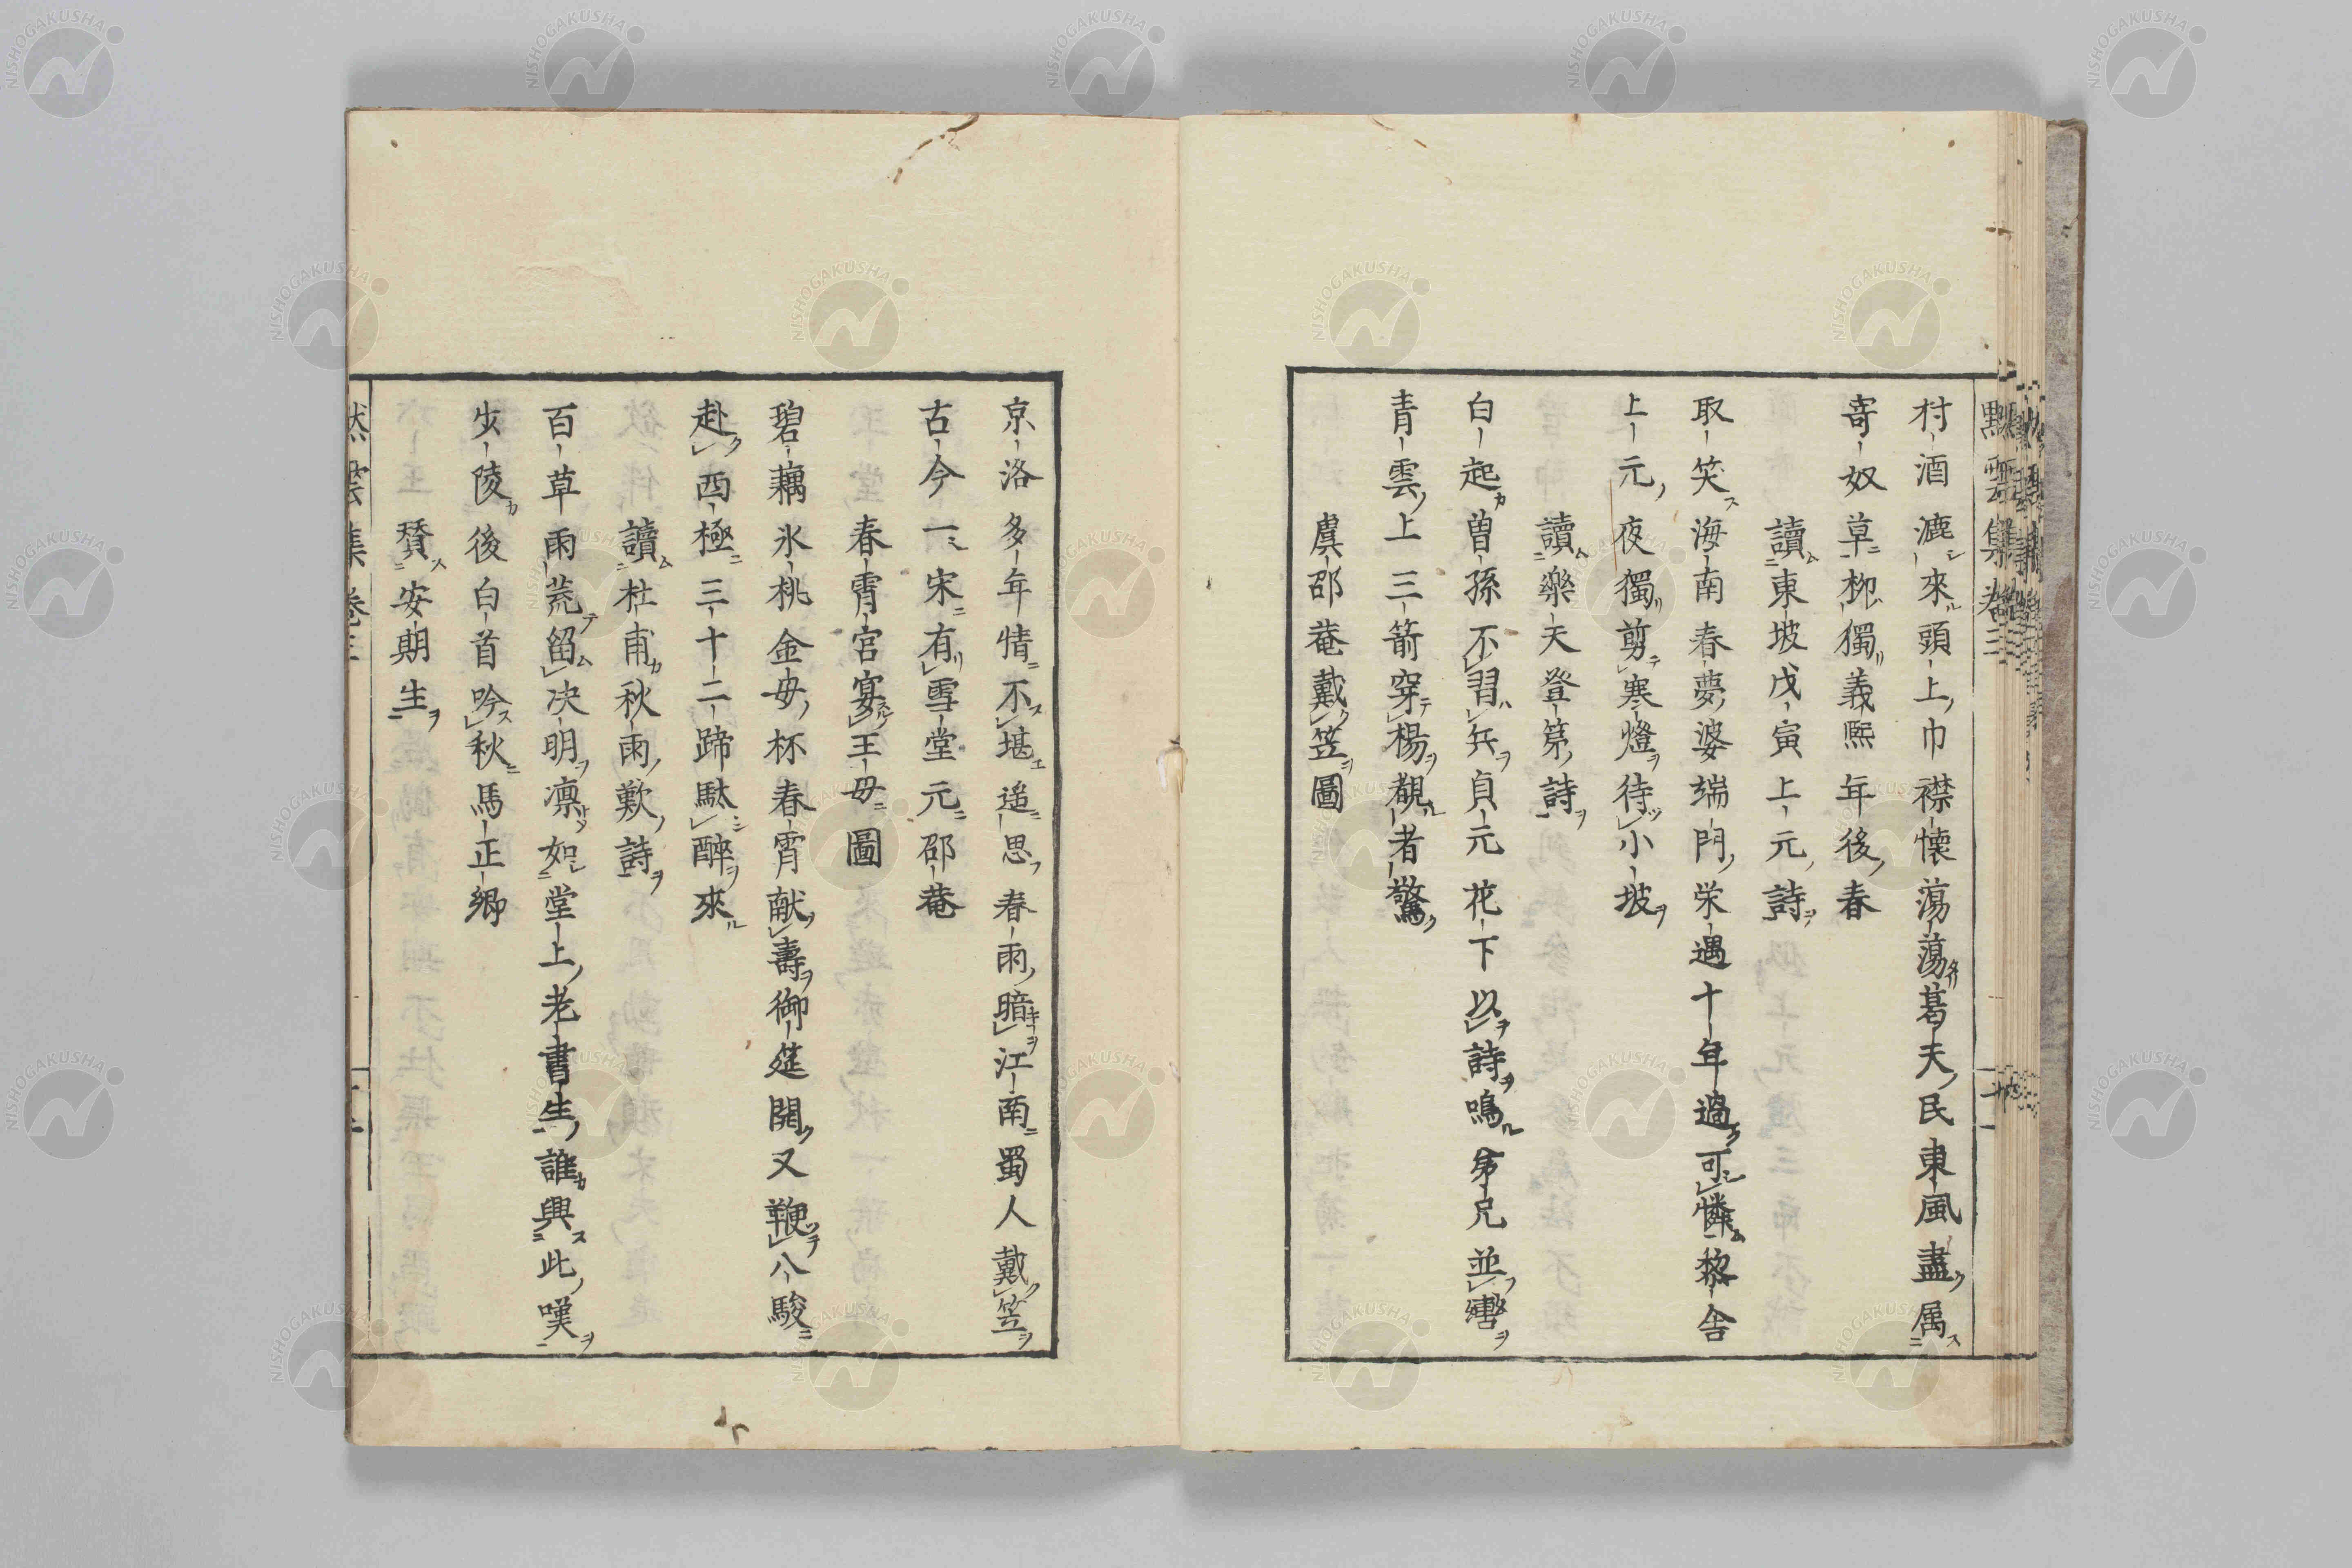 村酒漉來頭上巾襟懷蕩蕩葛天民東風盡屬
寄奴草柳獨義熙年後春
讀東坡戊寅上元詩
取笑海南春夢婆端門榮遇十年過可憐黎舍
上元夜獨剪寒燈待小坡
讀樂天登第詩
白起曽孫不習兵貞元花下以詩鳴弟兄並轡
青雲上三箭穿楊覩者驚
虞邵菴戴笠圖
京洛多年情不堪遥思春雨暗江南蜀人戴笠
古今一宋有雪堂元邵菴
春霄宮宴王母圖
碧藕氷桃金母杯春霄献壽御筵開又鞭八駿
赴西極三十二蹄駄醉來
讀杜甫秋雨歎詩
百草雨荒留决明凛如堂上老書生誰興此嘆
少陵後白首吟秋馬正卿
賛安期生
黙雲集卷三
NISHOGAKUSHA